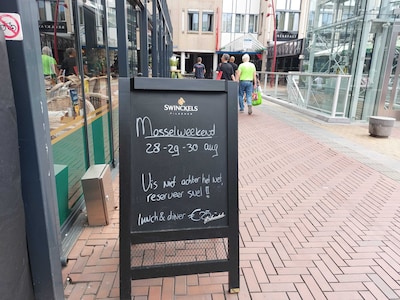 SWINCKELS
PILSENER
Mosselweekend
28-29-30 aug
Vis niet achter het net
reserveer snel !!
lunch & diner €